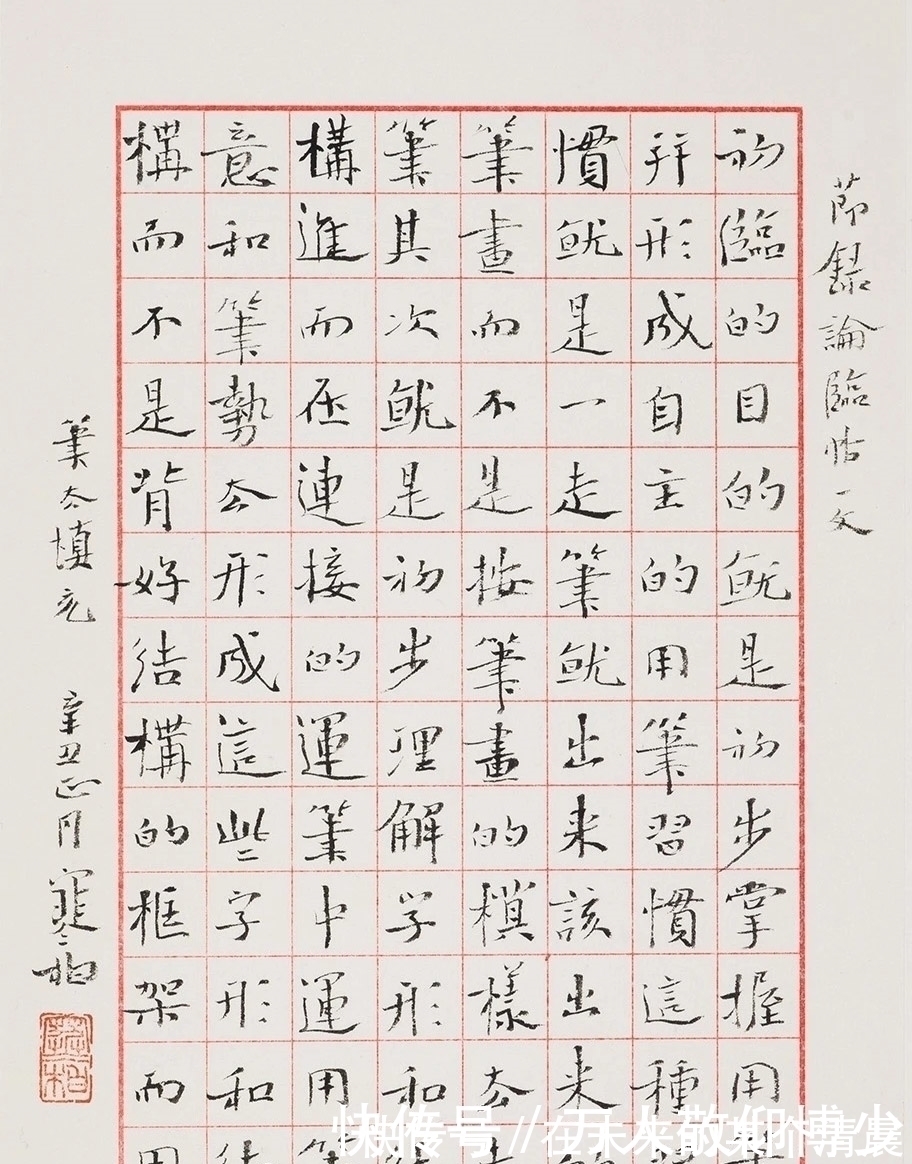 節錄論臨帖一文
初臨的目的就是初步掌握用筆
并形成自主的用筆習慣這種
慣就是一走筆就出来該出来
筆畫而不是按筆畫的模樣去
筆其次就是初步理解字形和
構進而在連接的運筆中運用
意和筆勢去形成這些字形和結
構而不是背好結構的框架而用
筆去填充 辛丑正月 寒柏
快传号//在未来敬仰博尖